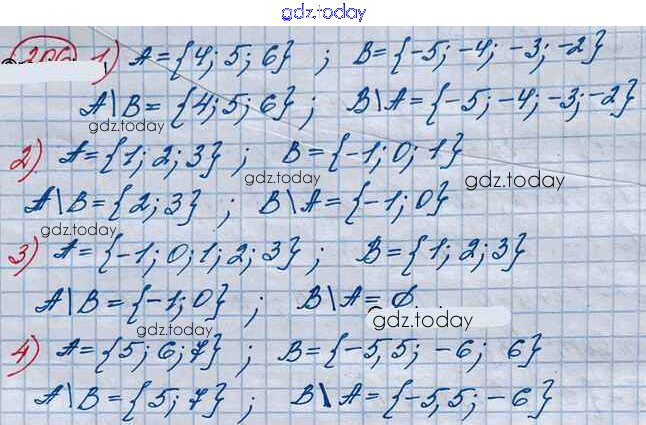 gdz.today
1) A={4; 5; 6} ; B={-5; -4; -3; -2}
A\B= {4; 5; 6} ; B\A={-5; -4; -3; -2}
gdz.today
2) A={1; 2; 3} ; B={-1; 0; 1}
gdz.today gdz.today
A\B={2; 3} ; B\A={-1; 0}
gdz.today
3) A={-1; 0; 1; 2; 3} ; B={1; 2; 3}
A\B={-1; 0} ; B\A=∅
gdz.today gdz.today
4) A={5; 6; 7} ; B={-5,5; -6; 6}
A\B={5; 7} ; B\A={-5,5; -6}